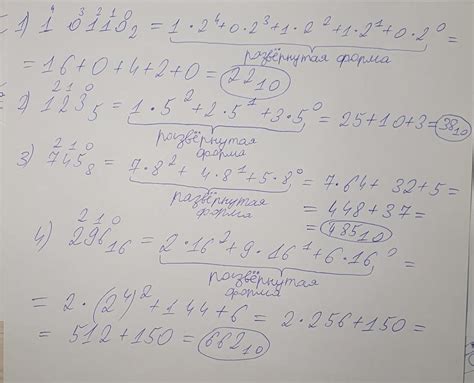 1) 1⁴ 0³1²1¹0⁰₂ = 1·2⁴+0·2³+1·2²+1·2¹+0·2⁰ =
развёрнутая форма
= 16+0+4+2+0 = 22₁₀
2) 1²2¹3⁰₅ = 1·5²+2·5¹+3·5⁰ = 25+10+3=38₁₀
развёрнутая
форма
3) 7²4¹5⁰₈ = 7·8²+ 4·8¹+5·8⁰ = 7·64+ 32+5=
развёрнутая
форма
= 448+37=
= 485₁₀
4) 2²9¹6⁰₁₆ = 2·16²+9·16¹+6·16⁰ =
развёрнутая
форма
= 2·(2⁴)²+144+6 = 2·256+150=
= 512+150= 662₁₀